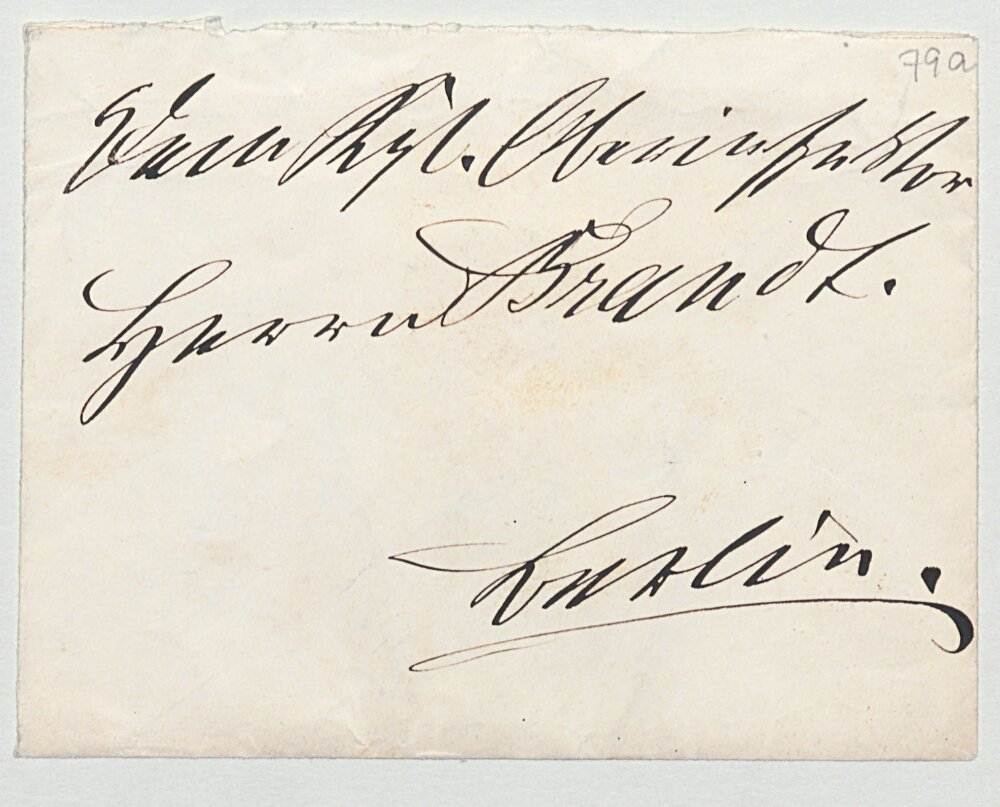 79a
Dem Kgl. Oberinspektor
Herrn Brandt.
Berlin.